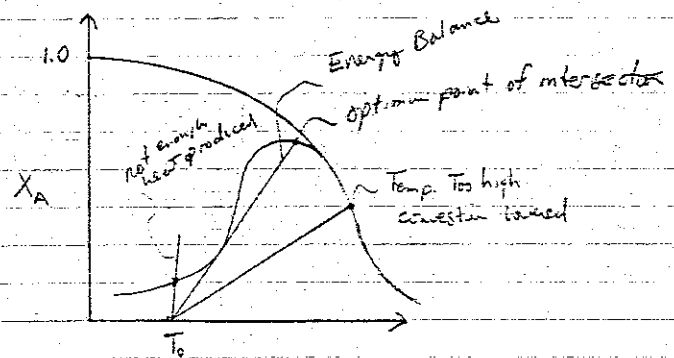 1.0
Energy Balance
optimum point of intersection
not enough
heat produced
X_A
Temp. Too high
conversion lowered
T_0